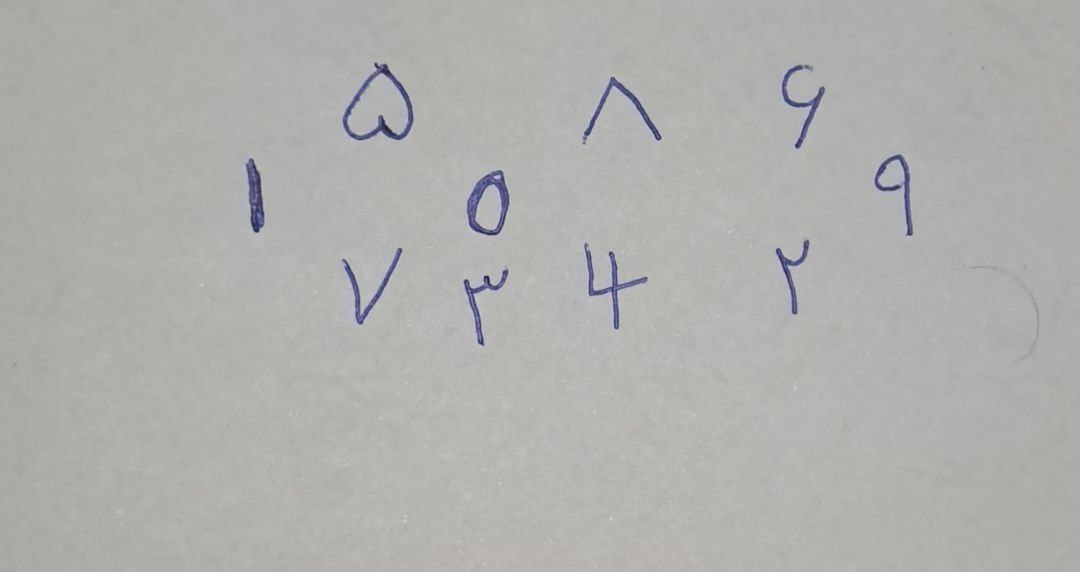 ۵ ۸ ۶
۱ 0 ۹
۷ ۳ 4 ۲